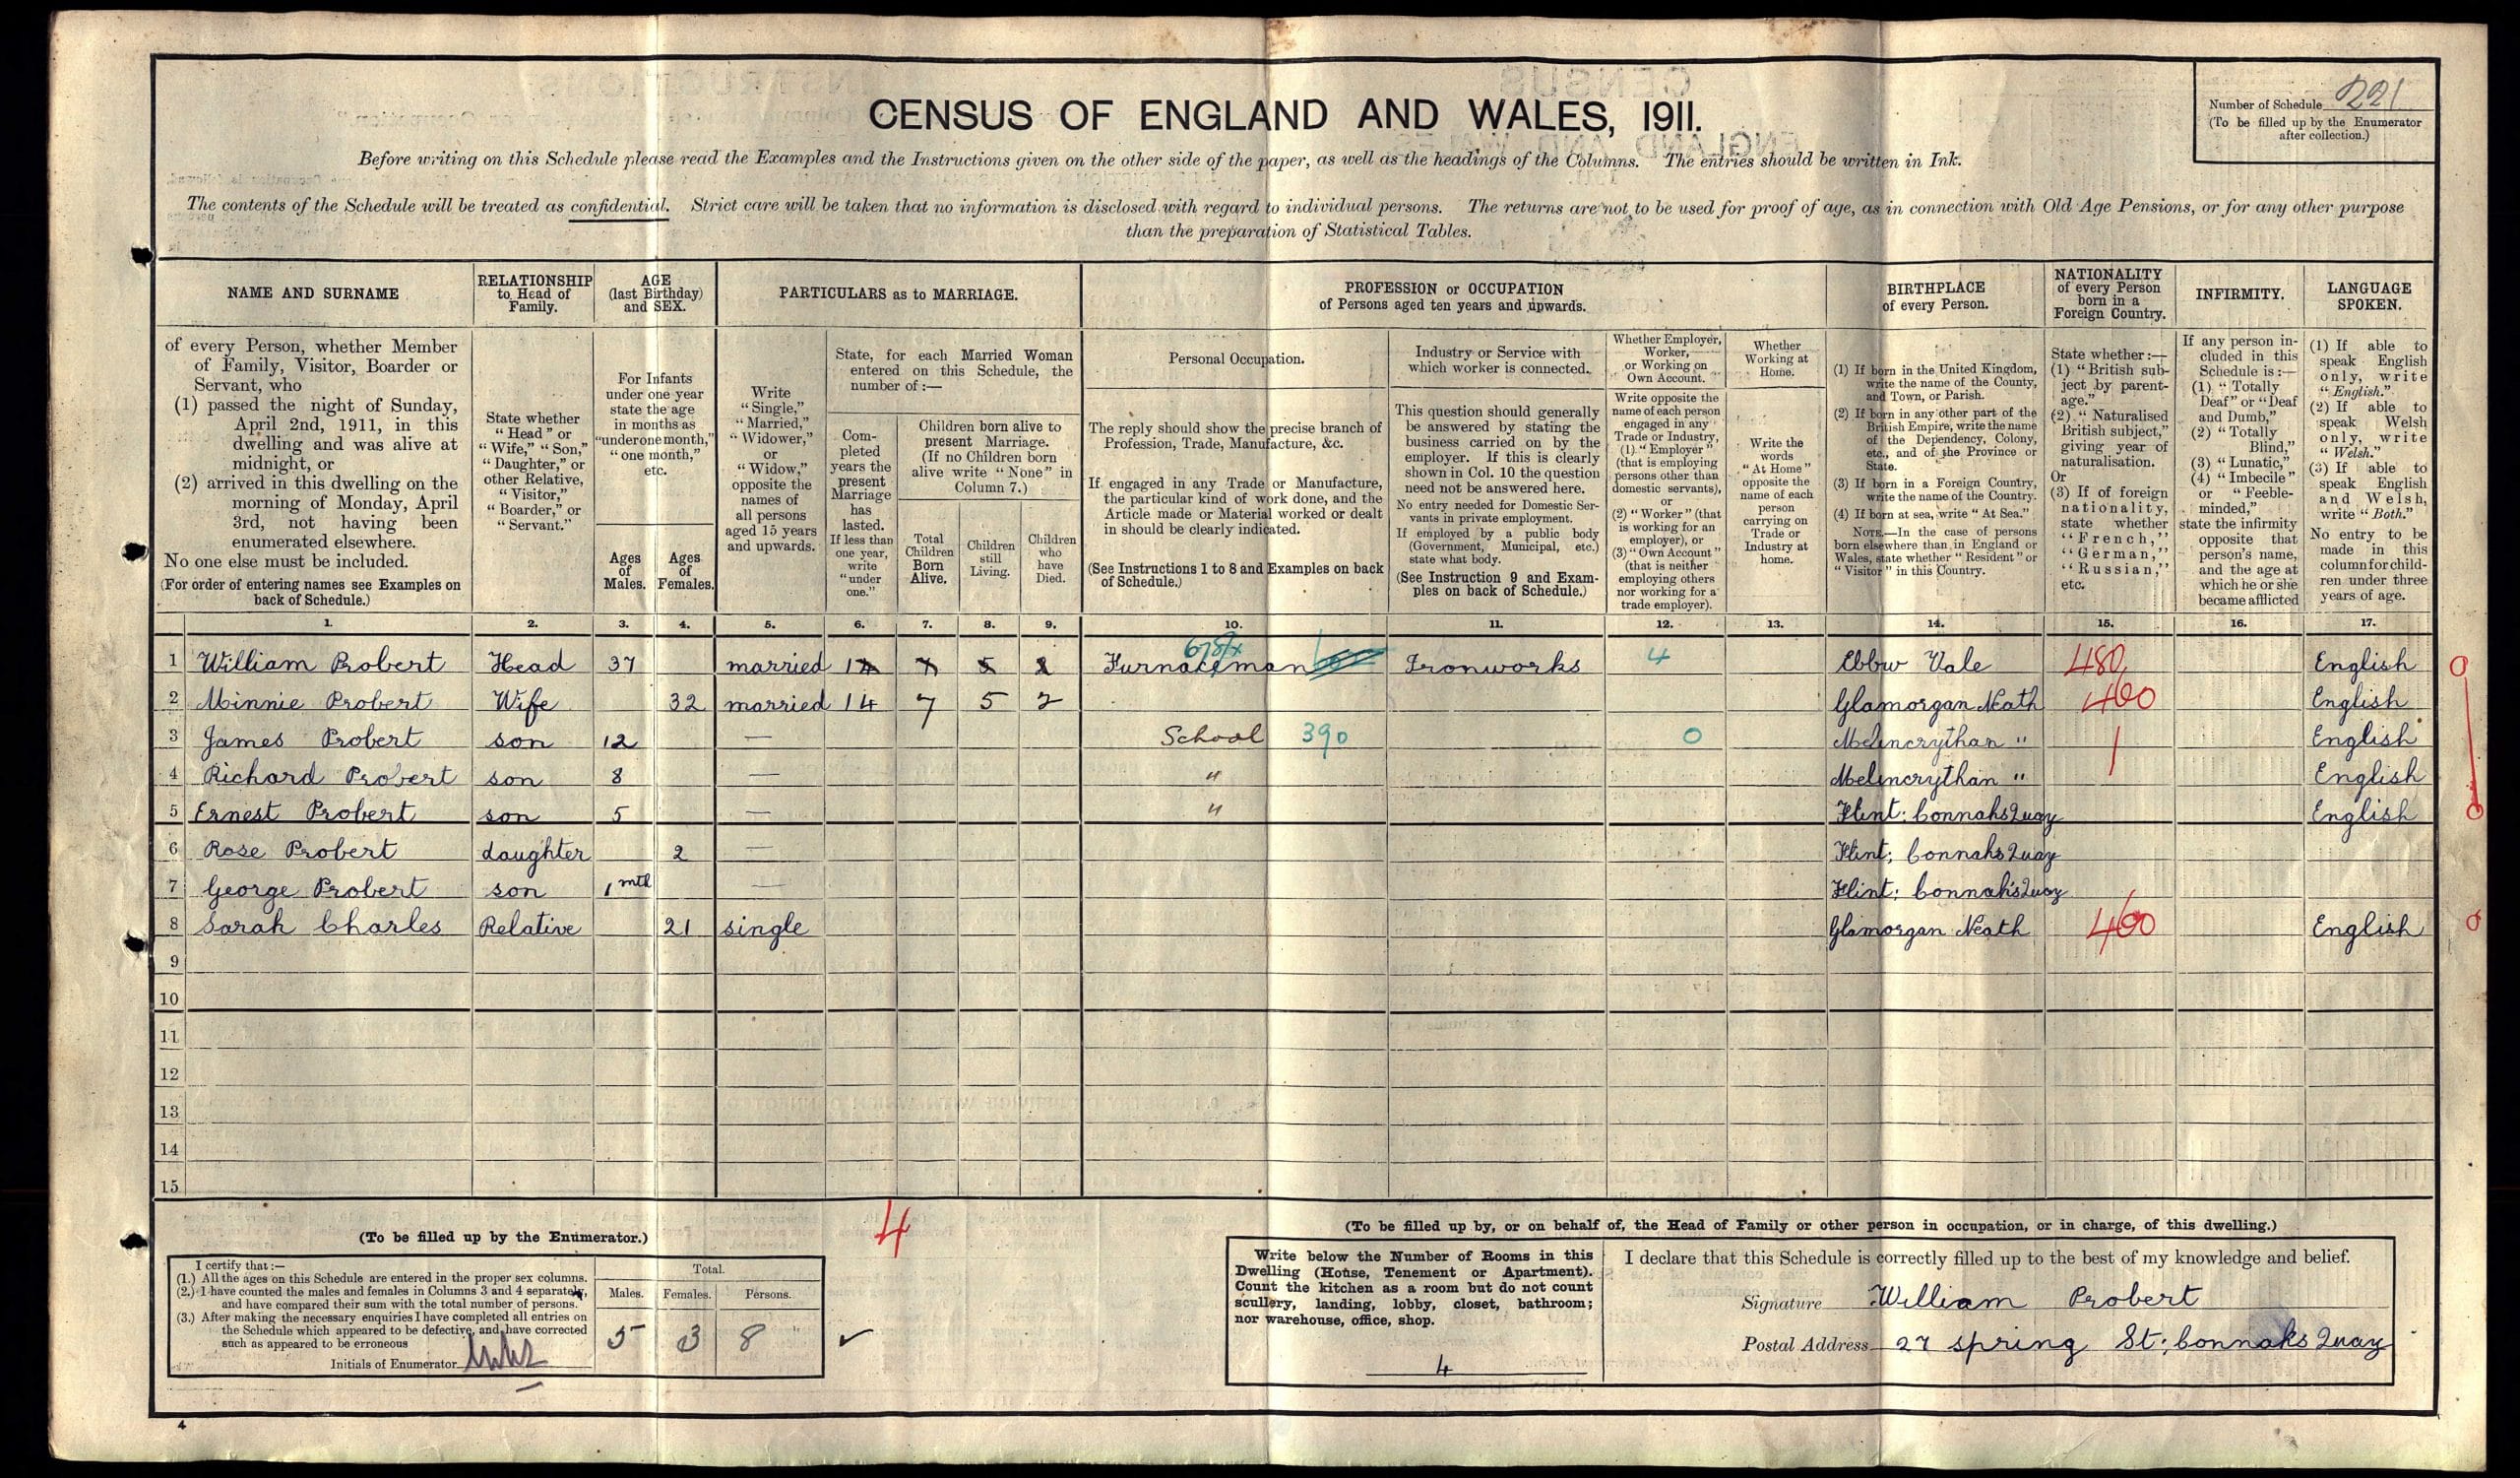 CENSUS OF ENGLAND AND WALES, 1911.
Number of Schedule 221
(To be filled up by the Enumerator
after collection.)
Before writing on this Schedule please read the Examples and the Instructions given on the other side of the paper, as well as the headings of the Columns. The entries should be written in Ink.
The contents of the Schedule will be treated as confidential. Strict care will be taken that no information is disclosed with regard to individual persons. The returns are not to be used for proof of age, as in connection with Old Age Pensions, or for any other purpose
than the preparation of Statistical Tables.
NAME AND SURNAME
of every Person, whether Member
of Family, Visitor, Boarder or
Servant, who
(1) passed the night of Sunday,
April 2nd, 1911, in this
dwelling and was alive at
midnight, or
(2) arrived in this dwelling on the
morning of Monday, April
3rd, not having been
enumerated elsewhere.
No one else must be included.
(For order of entering names see Examples on
back of Schedule.)
RELATIONSHIP
to Head of
Family.
State whether
"Head" or
"Wife," "Son,"
"Daughter," or
other Relative,
"Visitor,"
"Boarder," or
"Servant."
AGE
(last Birthday)
and SEX.
For Infants
under one year
state the age
in months as
"under one month,"
"one month,"
etc.
Ages
of
Males.
Ages
of
Females.
PARTICULARS as to MARRIAGE.
Write
"Single,"
"Married,"
"Widower,"
or
"Widow,"
opposite the
names of
all persons
aged 15 years
and upwards.
State, for each Married Woman
entered on this Schedule, the
number of :—
Com-
pleted
years the
present
Marriage
has
lasted.
If less than
one year,
write
"under
one."
Children born alive to
present Marriage.
(If no Children born
alive write "None" in
Column 7.)
Total
Children
Born
Alive.
Children
still
Living.
Children
who
have
Died.
PROFESSION or OCCUPATION
of Persons aged ten years and upwards.
Personal Occupation.
The reply should show the precise branch of
Profession, Trade, Manufacture, &c.
If engaged in any Trade or Manufacture,
the particular kind of work done, and the
Article made or Material worked or dealt
in should be clearly indicated.
(See Instructions 1 to 8 and Examples on back
of Schedule.)
Industry or Service with
which worker is connected.
This question should generally
be answered by stating the
business carried on by the
employer. If this is clearly
shown in Col. 10 the question
need not be answered here.
No entry needed for Domestic Ser-
vants in private employment.
If employed by a public body
(Government, Municipal, etc.)
state what body.
(See Instruction 9 and Exam-
ples on back of Schedule.)
Whether Employer,
Worker,
or Working on
Own Account.
Write opposite the
name of each person
engaged in any
Trade or Industry,
(1) "Employer"
(that is employing
persons other than
domestic servants),
or
(2) "Worker" (that
is working for an
employer), or
(3) "Own Account"
(that is neither
employing others
nor working for a
trade employer).
Whether
Working at
Home.
Write the
words
"At Home"
opposite the
name of each
person
carrying on
Trade or
Industry at
home.
BIRTHPLACE
of every Person.
(1) If born in the United Kingdom,
write the name of the County,
and Town, or Parish.
(2) If born in any other part of the
British Empire, write the name
of the Dependency, Colony,
etc., and of the Province or
State.
(3) If born in a Foreign Country,
write the name of the Country.
(4) If born at sea, write "At Sea."
NOTE.—In the case of persons
born elsewhere than in England or
Wales, state whether "Resident" or
"Visitor" in this Country.
NATIONALITY
of every Person
born in a
Foreign Country.
State whether :—
(1) "British sub-
ject by parent-
age."
(2) "Naturalised
British subject,"
giving year of
naturalisation.
Or
(3) If of foreign
nationality,
state whether
"French,"
"German,"
"Russian,"
etc.
INFIRMITY.
If any person in-
cluded in this
Schedule is :—
(1) "Totally
Deaf" or "Deaf
and Dumb,"
(2) "Totally
Blind,"
(3) "Lunatic,"
(4) "Imbecile"
or "Feeble-
minded,"
state the infirmity
opposite that
person's name,
and the age at
which he or she
became afflicted
LANGUAGE
SPOKEN.
(1) If able to
speak English
only, write
"English."
(2) If able to
speak Welsh
only, write
"Welsh."
(3) If able to
speak English
and Welsh,
write "Both."
No entry to be
made in this
column for child-
ren under three
years of age.
1. 2. 3. 4. 5. 6. 7. 8. 9. 10. 11. 12. 13. 14. 15. 16. 17.
1 William Probert Head 37 married Furnaceman Ironworks 4 Ebbw Vale 480 English
2 Minnie Probert Wife 32 married 14 7 5 2 Glamorgan Neath 460 English
3 James Probert son 12 — School 390 0 Melincrythan " English
4 Richard Probert son 8 — " Melincrythan " English
5 Ernest Probert son 5 — " Flint; Connahs Quay English
6 Rose Probert daughter 2 — Flint; Connahs Quay
7 George Probert son 1 mth — Flint; Connah's Quay
8 Sarah Charles Relative 21 single Glamorgan Neath 460 English
9
10
11
12
13
14
15
4
(To be filled up by the Enumerator.)
I certify that :—
(1.) All the ages on this Schedule are entered in the proper sex columns.
(2.) I have counted the males and females in Columns 3 and 4 separately,
and have compared their sum with the total number of persons.
(3.) After making the necessary enquiries I have completed all entries on
the Schedule which appeared to be defective, and have corrected
such as appeared to be erroneous
Initials of Enumerator
Total.
Males. Females. Persons.
5 3 8
(To be filled up by, or on behalf of, the Head of Family or other person in occupation, or in charge, of this dwelling.)
Write below the Number of Rooms in this
Dwelling (House, Tenement or Apartment).
Count the kitchen as a room but do not count
scullery, landing, lobby, closet, bathroom;
nor warehouse, office, shop.
4
I declare that this Schedule is correctly filled up to the best of my knowledge and belief.
Signature William Probert
Postal Address 27 Spring St; Connahs Quay
4